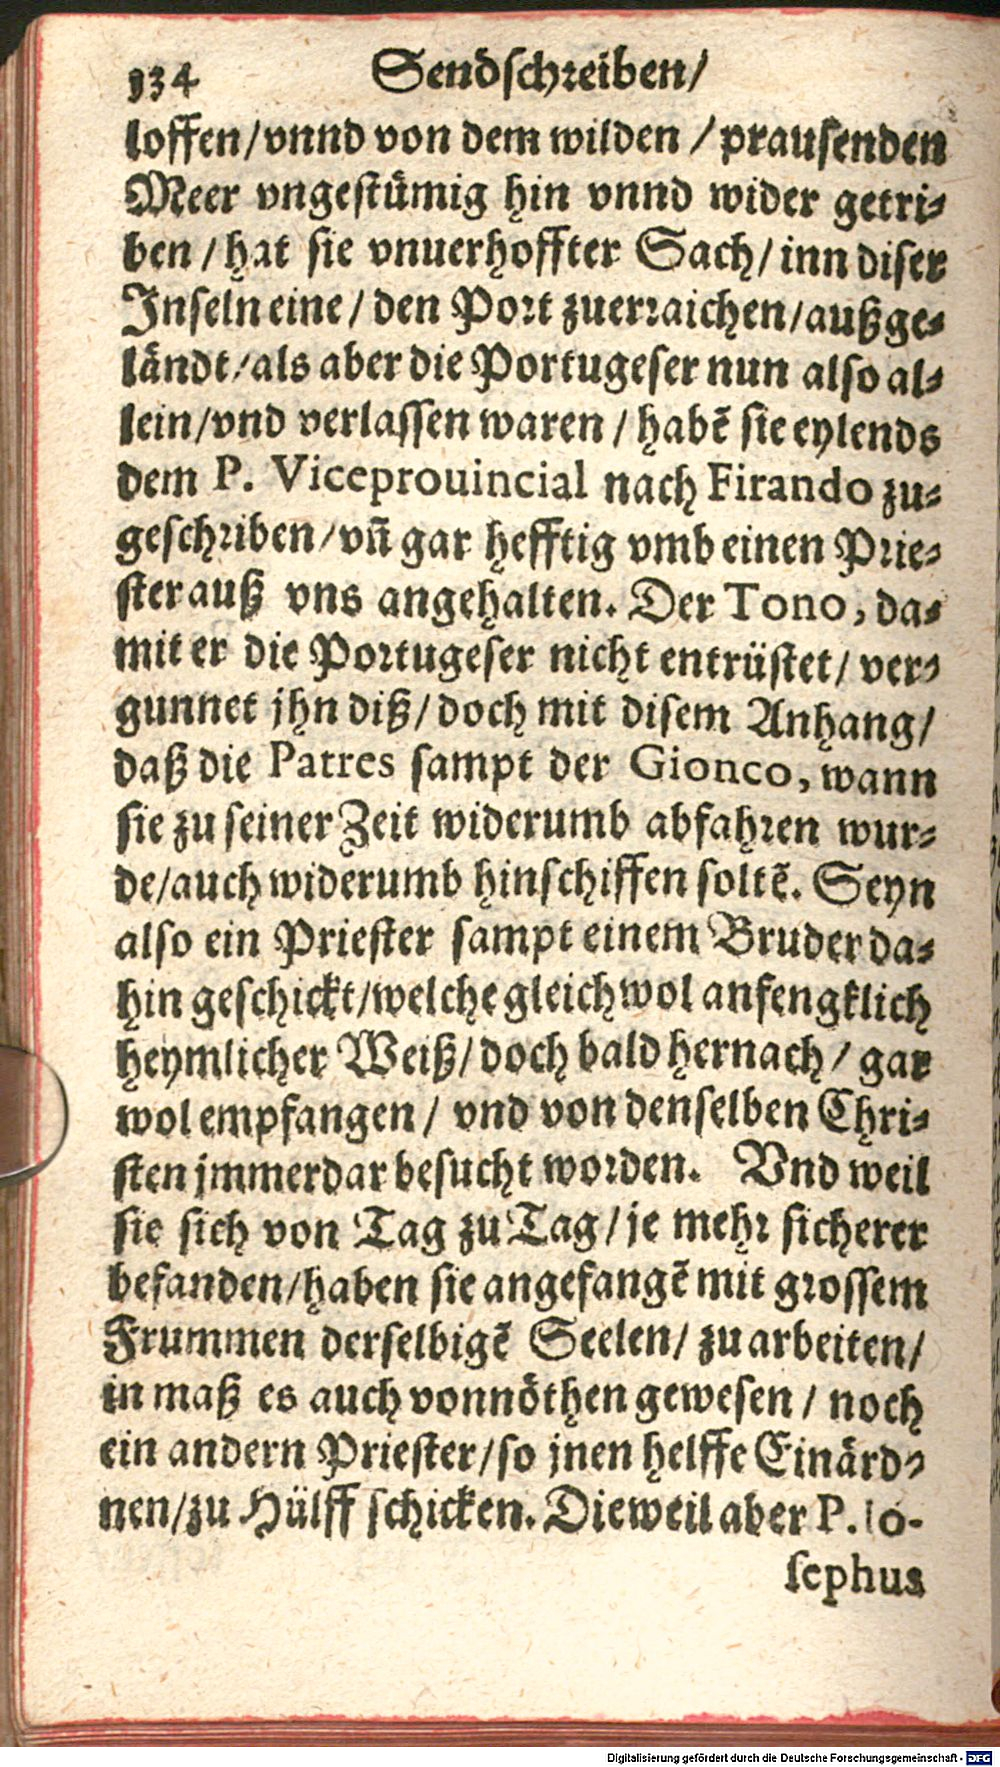 134 Sendschreiben/
loffen/vnnd von dem wilden / prausenden
Meer vngestümig hin vnnd wider getri-
ben / hat sie vnuerhoffter Sach/ inn diser
Inseln eine / den Port zuerraichen/außge-
ländt/als aber die Portugeser nun also al-
lein/vnd verlassen waren / habẽ sie eylends
dem P. Viceprouincial nach Firando zu-
geschriben/vñ gar hefftig vmb einen Prie-
ster auß vns angehalten. Der Tono, da-
mit er die Portugeser nicht entrüstet/ ver-
gunnet jhn diß/ doch mit disem Anhang/
daß die Patres sampt der Gionco, wann
sie zu seiner Zeit widerumb abfahren wur-
de/auch widerumb hinschiffen soltẽ. Seyn
also ein Priester sampt einem Bruder da-
hin geschickt/welche gleichwol anfengklich
heymlicher Weiß/ doch bald hernach / gar
wol empfangen / vnd von denselben Chri-
sten jmmerdar besucht worden. Vnd weil
sie sich von Tag zu Tag/ je mehr sicherer
befanden/haben sie angefangẽ mit grossem
Frummen derselbigẽ Seelen/ zu arbeiten/
in maß es auch vonnöthen gewesen / noch
ein andern Priester/so jnen helffe Einärd-
nen/zu Hülff schicken. Dieweil aber P. Io-
sephus
Digitalisierung gefördert durch die Deutsche Forschungsgemeinschaft - DFG